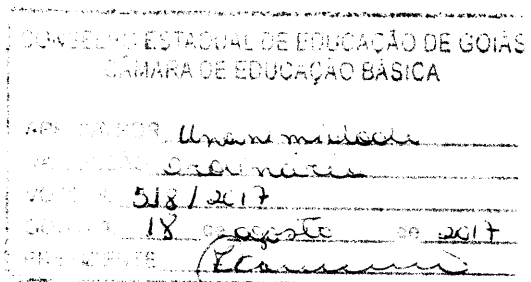 CONSELHO ESTADUAL DE EDUCAÇÃO DE GOIÁS
CÂMARA DE EDUCAÇÃO BÁSICA
POR Unanimidade
ordinária
518/2017
18 de agosto de 2017